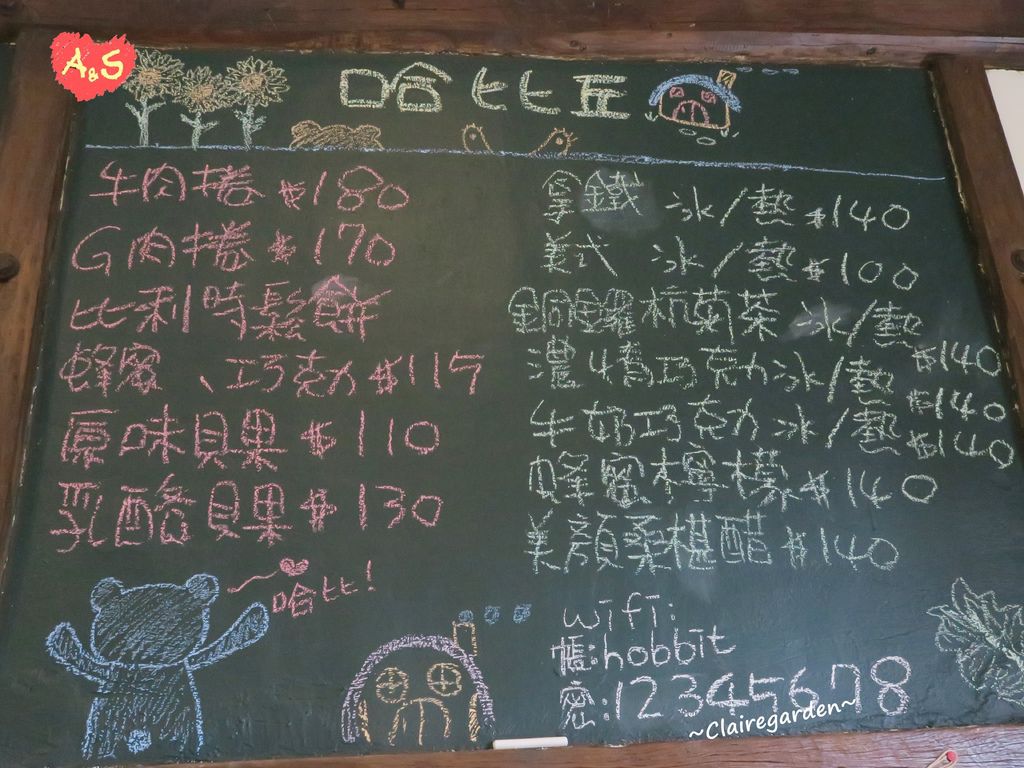 A&S
哈比丘
牛肉捲 $180
G肉捲 $170
比利時鬆餅
蜂蜜、巧克力 $115
原味貝果 $110
乳酪貝果 $130
哈比!
拿鐵 冰/熱 $140
美式 冰/熱 $100
銅鑼杭菊茶 冰/熱 $140
濃情巧克力 冰/熱 $140
牛奶巧克力 冰/熱 $140
蜂蜜檸檬 $140
美顏桑椹醋 $140
wifi:
帳:hobbit
密:12345678
~Clairegarden~